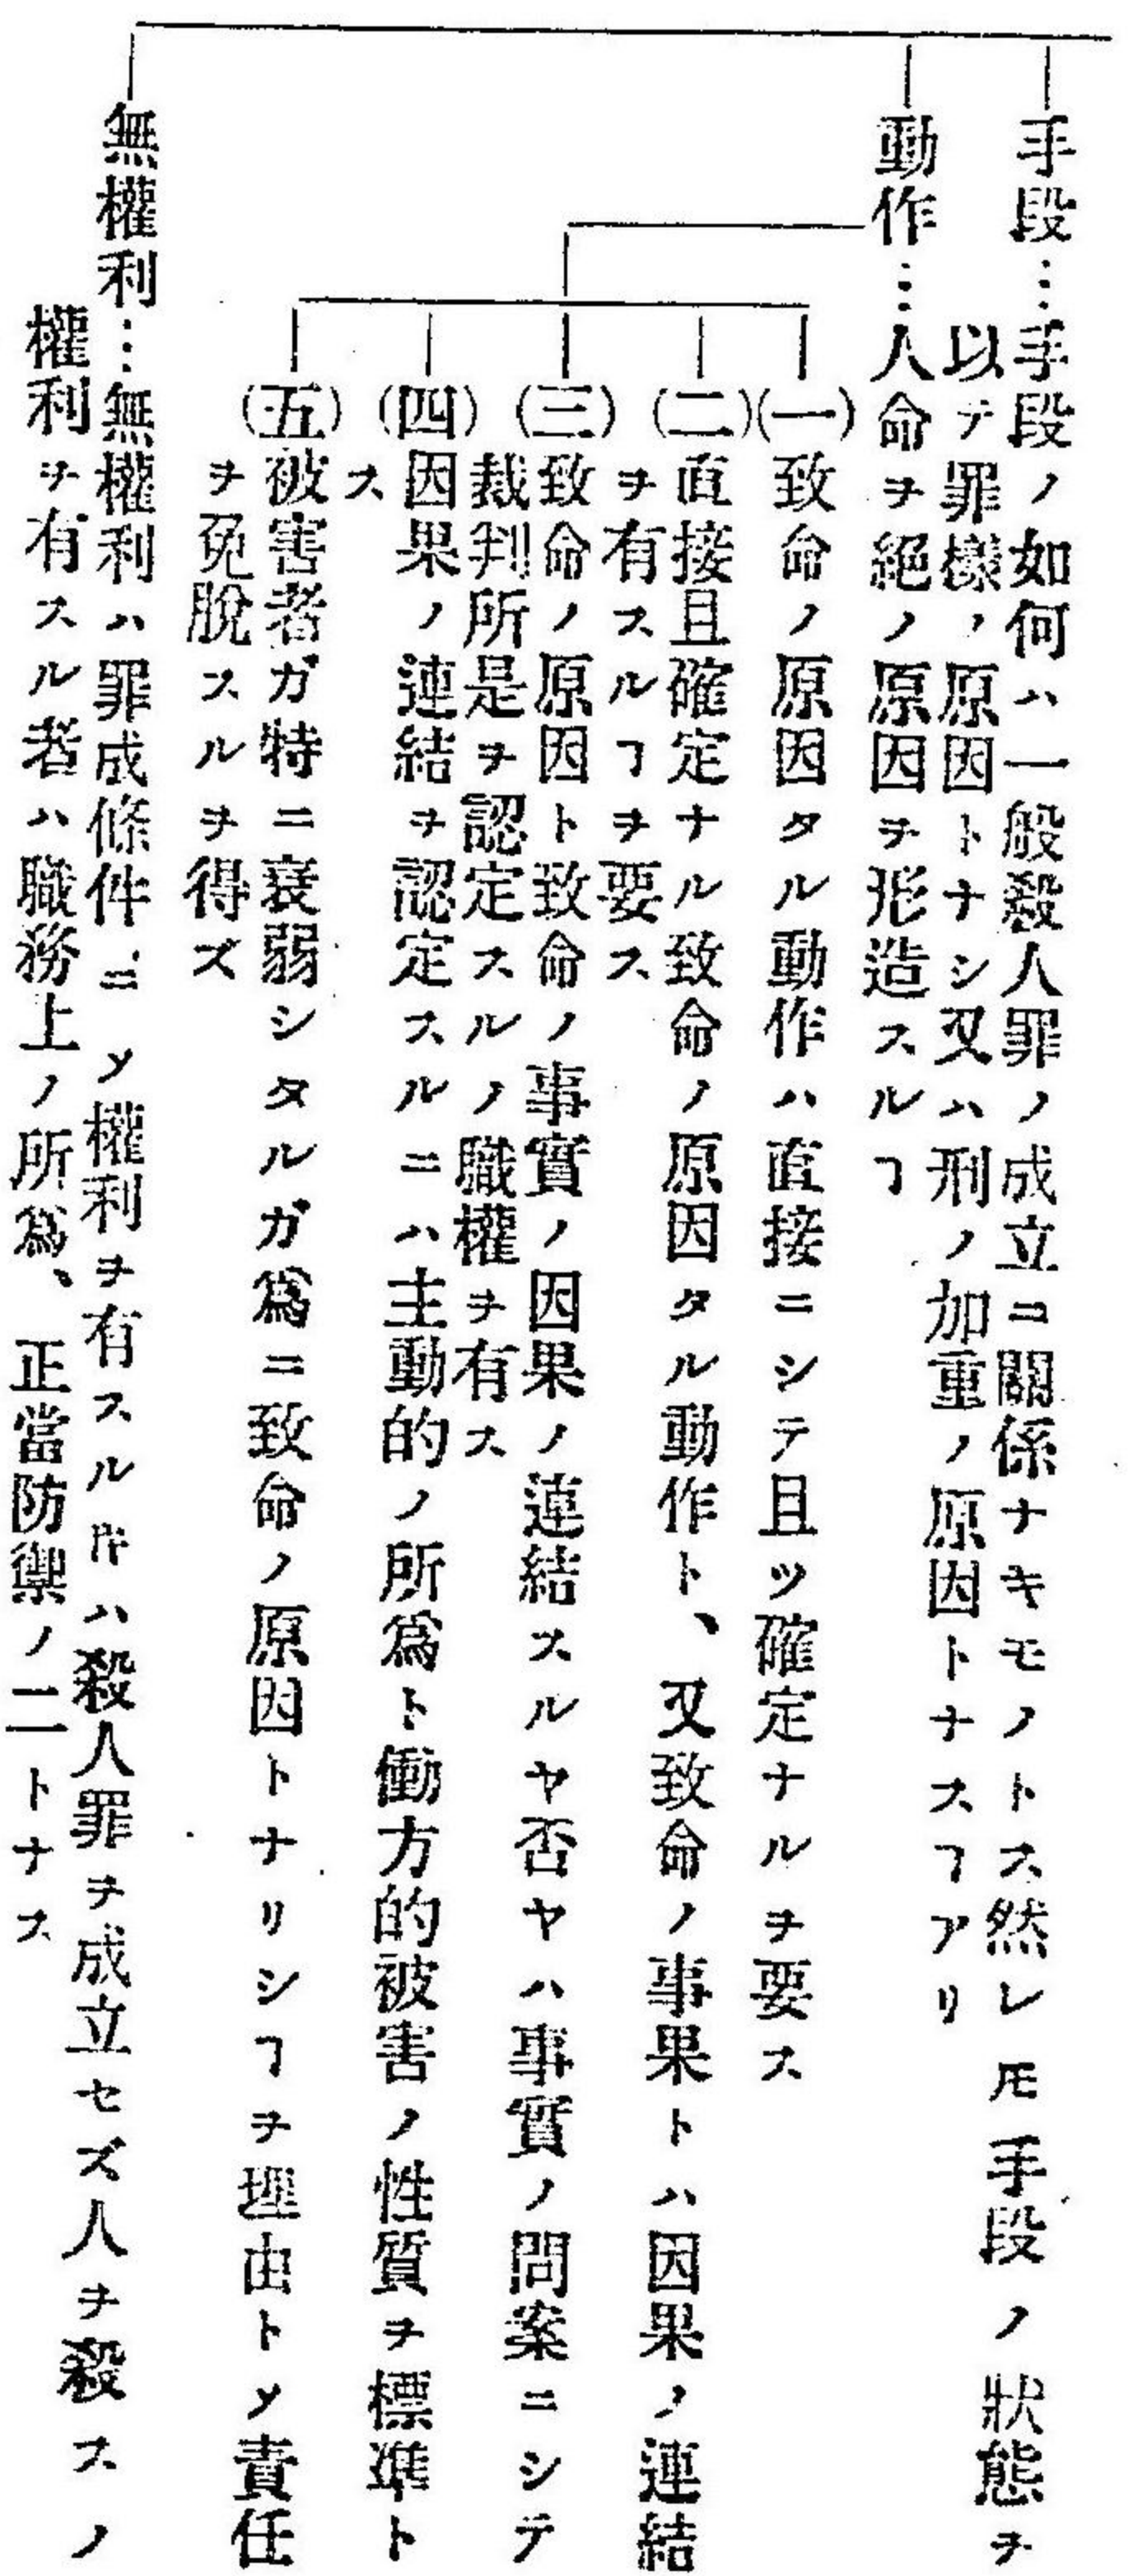 手段…手段ノ如何ハ一般殺人罪ノ成立ニ關係ナキモノトス然レ𪜈手段ノ狀態ヲ
以テ罪樣ノ原因トナシ又ハ刑ノ加重ノ原因トナスヿアリ
動作…人命ヲ絕ノ原因ヲ形造スルヿ
(一)致命ノ原因タル動作ハ直接ニシテ且ツ確定ナルヲ要ス
(二)直接且確定ナル致命ノ原因タル動作ト、又致命ノ事果トハ因果ノ連結
ヲ有スルヿヲ要ス
(三)致命ノ原因ト致命ノ事實ノ因果ノ連結スルヤ否ヤハ事實ノ問案ニシテ
裁判所是ヲ認定スルノ職權ヲ有ス
(四)因果ノ連結ヲ認定スルニハ主動的ノ所爲ト働方的被害ノ性質ヲ標準ト
ス
(五)被害者ガ特ニ衰弱シタルガ爲ニ致命ノ原因トナリシヿヲ理由トメ責任
ヲ免脫スルヲ得ズ
無權利…無權利ハ罪成條件ニメ權利ヲ有スル㪅ハ殺人罪ヲ成立セズ人ヲ殺スノ
權利ヲ有スル者ハ職務上ノ所爲、正當防禦ノ二トナス